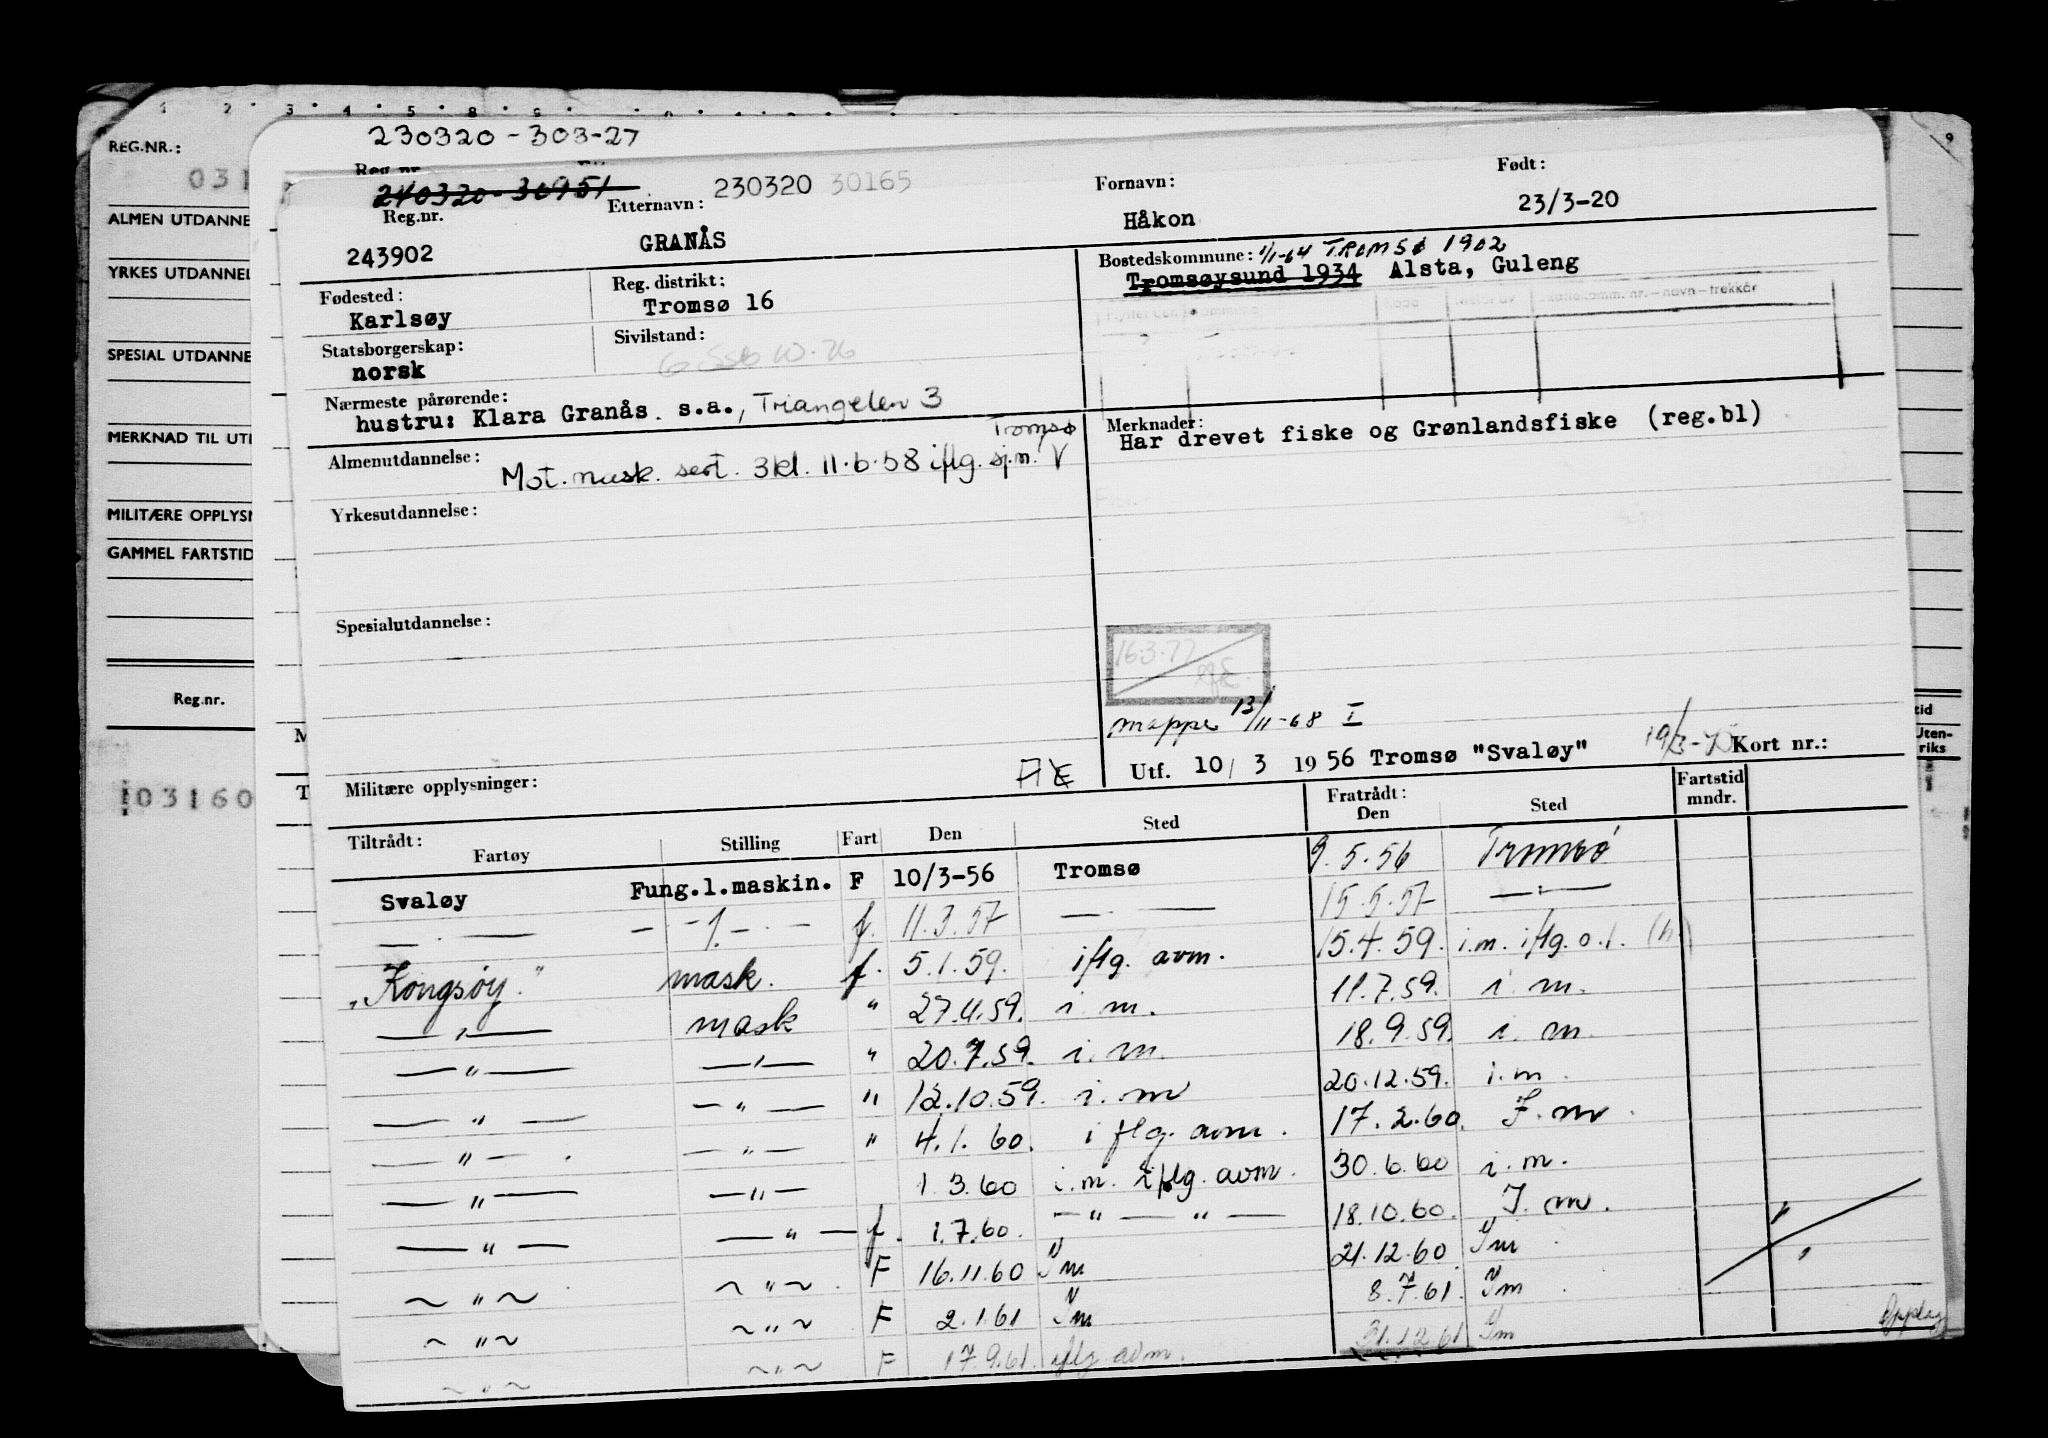 1 2 3 4 5 8 9
REG.NR.:
031
ALMEN UTDANNE
YRKES UTDANNEL
SPESIAL UTDANNE
MERKNAD TIL UT
MILITÆRE OPPLYSN
GAMMEL FARTSTID
Reg.nr.
03160
230320-303-27
Reg.nr.
240320-36951
Reg.nr.
243902
Etternavn: 230320 30165
GRANÅS
Fornavn:
Håkon
Født:
23/3-20
Fødested:
Karlsøy
Reg. distrikt:
Tromsø 16
Bostedskommune: 1/1-64 TROMSØ 1902
Tromsøysund 1934 Alsta, Guleng
Statsborgerskap:
norsk
Sivilstand:
Nærmeste pårørende:
hustru: Klara Granås s.a., Triangelen 3
Tromsø
Almenutdannelse:
Mot. mask. sert. 3kl. 11.6.58 iflg. sj.m. V
Merknader:
Har drevet fiske og Grønlandsfiske (reg.bl)
Yrkesutdannelse:
Spesialutdannelse:
16.3.77
mappe 13/11-68 I
Utf. 10/ 3 1956 Tromsø "Svaløy"
Kort nr.:
Militære opplysninger:
Tiltrådt:
Fartøy Stilling Fart Den Sted Fratrådt: Den Sted Fartstid mndr.
Svaløy Fung.1.maskin. F 10/3-56 Tromsø 9.5.56 Tromsø
— . — — -1.- . — f. 11.3.57 — . — 15.5.57 — . —
"Kongsøy." mask. f. 5.1.59. iflg. avm. 15.4.59. i.m. iflg. o.l. (h.)
— " — mask " 27.4.59. i.m. 11.7.59. i.m.
— " — — " — " 20.7.59. i.m. 18.9.59. i.m.
— " — — " — " 12.10.59. i.m 20.12.59. i.m.
— " — — " — " 4.1.60. iflg. avm. 17.2.60. I.m.
— " — — " — 1.3.60 i.m. iflg. avm. 30.6.60 i.m.
— " — — " — f. 1.7.60. — " — " — 18.10.60. I.m.
~ " ~ ~ " ~ F 16.11.60 Im 21.12.60 Im
~ " ~ ~ " ~ F 2.1.61 Im 8.7.61. Im
~ " ~ ~ " ~ F 17.9.61. iflg avm. 31.12.61 Im